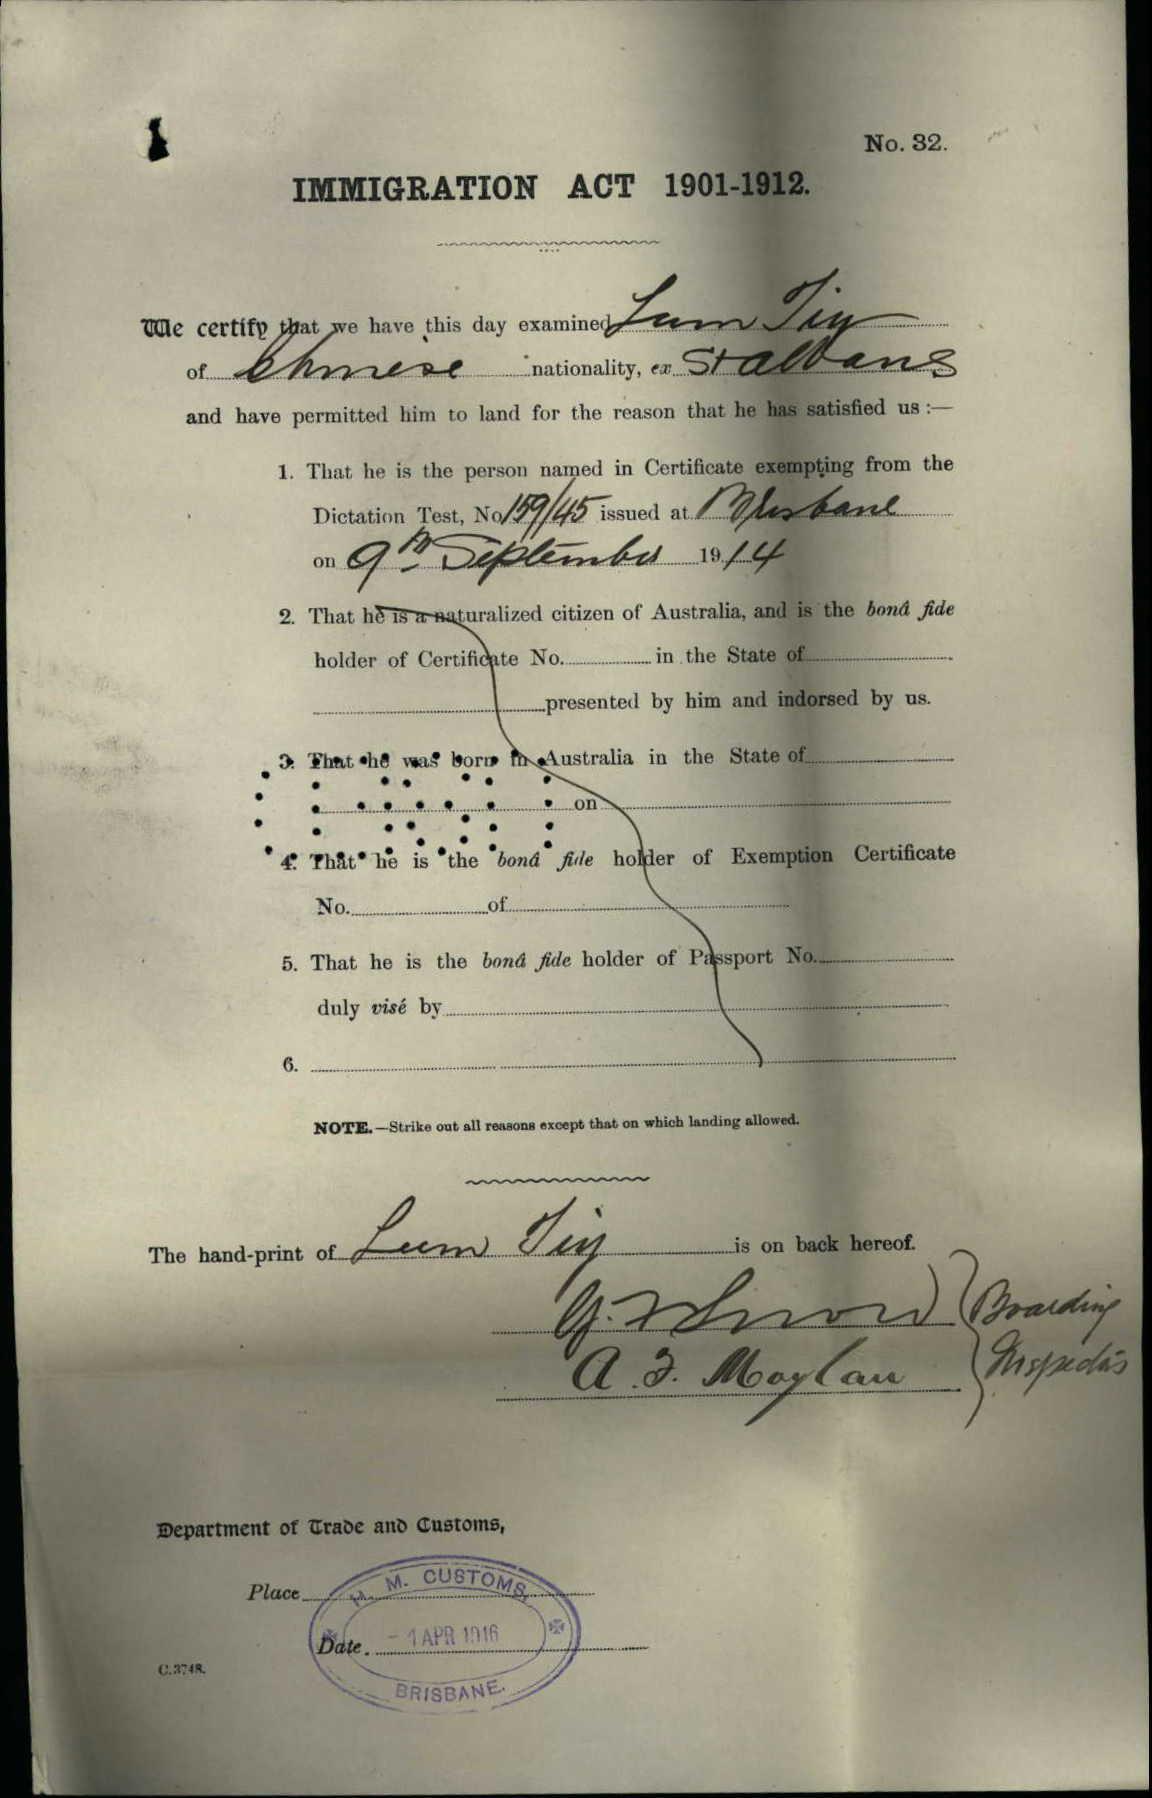 No. 32.
IMMIGRATION ACT 1901-1912.
We certify that we have this day examined Lum Tiy
of Chinese nationality, ex St Albans
and have permitted him to land for the reason that he has satisfied us :—
1. That he is the person named in Certificate exempting from the
Dictation Test, No 159/45 issued at Brisbane
on 9th September 1914
2. That he is a naturalized citizen of Australia, and is the bonâ fide
holder of Certificate No. in the State of
presented by him and indorsed by us.
3. That he was born in Australia in the State of
on
4. That he is the bonâ fide holder of Exemption Certificate
No. of
5. That he is the bonâ fide holder of Passport No.
duly visé by
6.
NOTE.—Strike out all reasons except that on which landing allowed.
The hand-print of Lum Tiy is on back hereof.
Boarding
A. F. Moylan Inspectors
Department of Trade and Customs,
Place
H. M. CUSTOMS,
Date. - 1 APR 1916
BRISBANE.
C.3748.